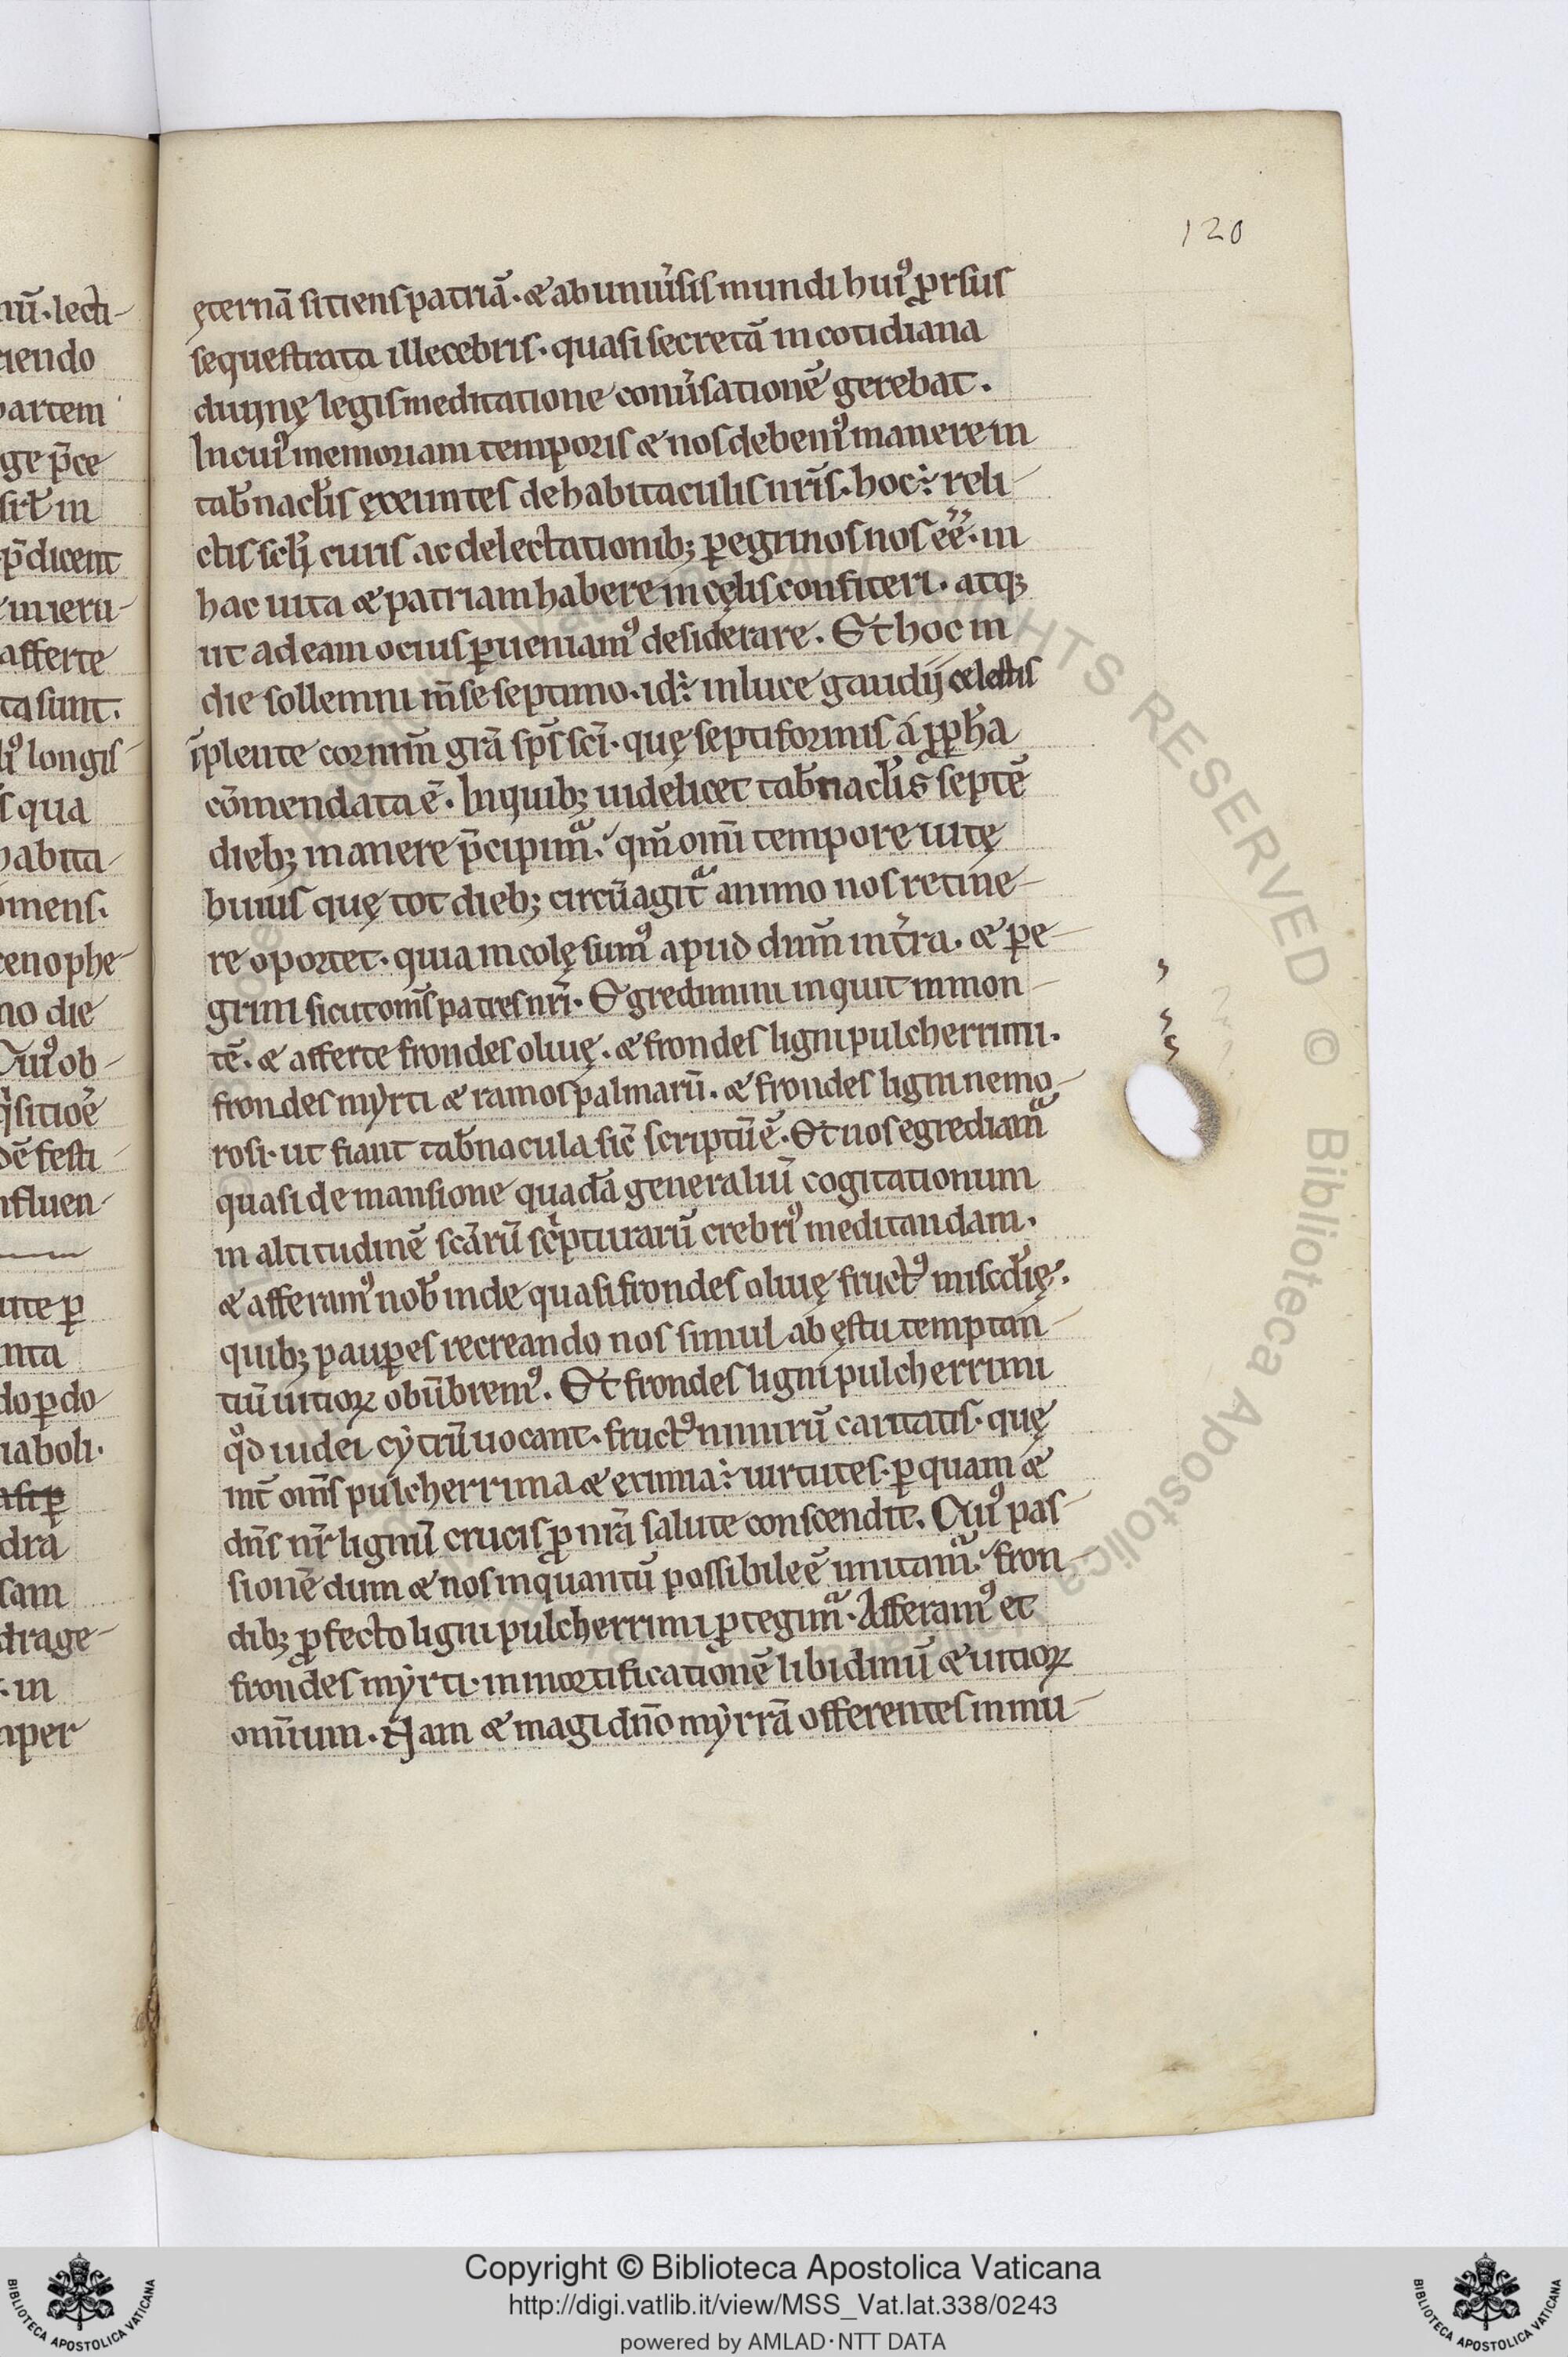 120
ęternā sitiens patriā. & ab uniũsis mundi hui᷒ ꝓrsus
sequestrata illecebris. quasi secretā in cotidiana
diuinę legis meditatione conũsationē gerebat.
In cui᷒ memoriam temporis & nos debem᷒ manere in
tab̃naclis̃ exeuntes de habitaculis nr̃is. hoc ÷ reli-
ctis sc̃li curis. ac delectationib; ꝑegrinos nos ee᷃. in
hac uita & patriam habere in cęlis confiteri. atq;
ut ad eam ocius ꝑueniam᷒ desiderare. Et hoc in
die sollemni m̃se septimo. id ÷ in luce gaudij celestis
īplente cor nr̃m gr̃a sp̃s sc̃i. quę septiformis a ꝓph̃a
cōmendata ē. In quib; uidelicet tab̃naclis̃ septē
dieb; manere p̃cipimᷓ. qm̃ omi tempore uitę
huius quę tot dieb; circūagit᷑ animo nos retine-
re oportet. quia incolę sum᷒ apud dn̄m in t̃ra. & ꝑe-
grini sicut om̃s patres nr̃i. Egredimini inquit in mon-
tē. & afferte frondes oliuę. & frondes ligni pulcherrimi.
frondes myrti & ramos palmarū. & frondes ligni nemo-
rosi. ut fiant tab̃nacula sic̃ scriptū ē. Et nos egrediamᷓ
quasi de mansione quadā generaliū cogitationum
in altitudinē scãrū sc̃pturarū crebri᷒ meditandam.
& afferam᷒ nob̃ inde quasi frondes oliuę fruct᷒ misc̃dię.
quib; pauꝑes recreando nos simul ab ęstu temptan-
tiū uitioꝝ obūbrem᷒. Et frondes ligni pulcherrimi
qᷓd iudei cytrū uocant. fruct᷒ nimirū caritatis. quę
int̃ om̃s pulcherrima & eximia ÷ uirtutes. ꝑ quam &
dn̄s nr̃ lignū crucis ꝓ nr̃a salute conscendit. Cui᷒ pas-
sionē dum & nos inquantū possibile ē imitamᷓ. fron-
dib; ꝓfecto ligni pulcherrimi ꝓtegimᷓ. Afferam᷒ et
frondes myrti. in mortificationē libidinū & uitioꝝ
omium. Nam & magi dn̄o myrrā offerentes in mu-
nū. lecti-
iendo
partem
ge p̃ce
sit̃ in
p̃dicent
in ieru-
afferte
ta sunt.
li᷒ longis-
s qua
habita-
mens.
cenophe-
no die
Cui᷒ ob-
sitiōe
dē festi-
nfluen-
ute ꝑ
nta
do ꝑ do-
iaboli.
dra
sam
drage-
. in
nper
© Biblioteca Apostolica Vaticana
RIGHTS RESERVED
Copyright © Biblioteca Apostolica Vaticana
http://digi.vatlib.it/view/MSS_Vat.lat.338/0243
powered by AMLAD·NTT DATA
BIBLIOTECA APOSTOLICA VATICANA
BIBLIOTECA APOSTOLICA VATICANA